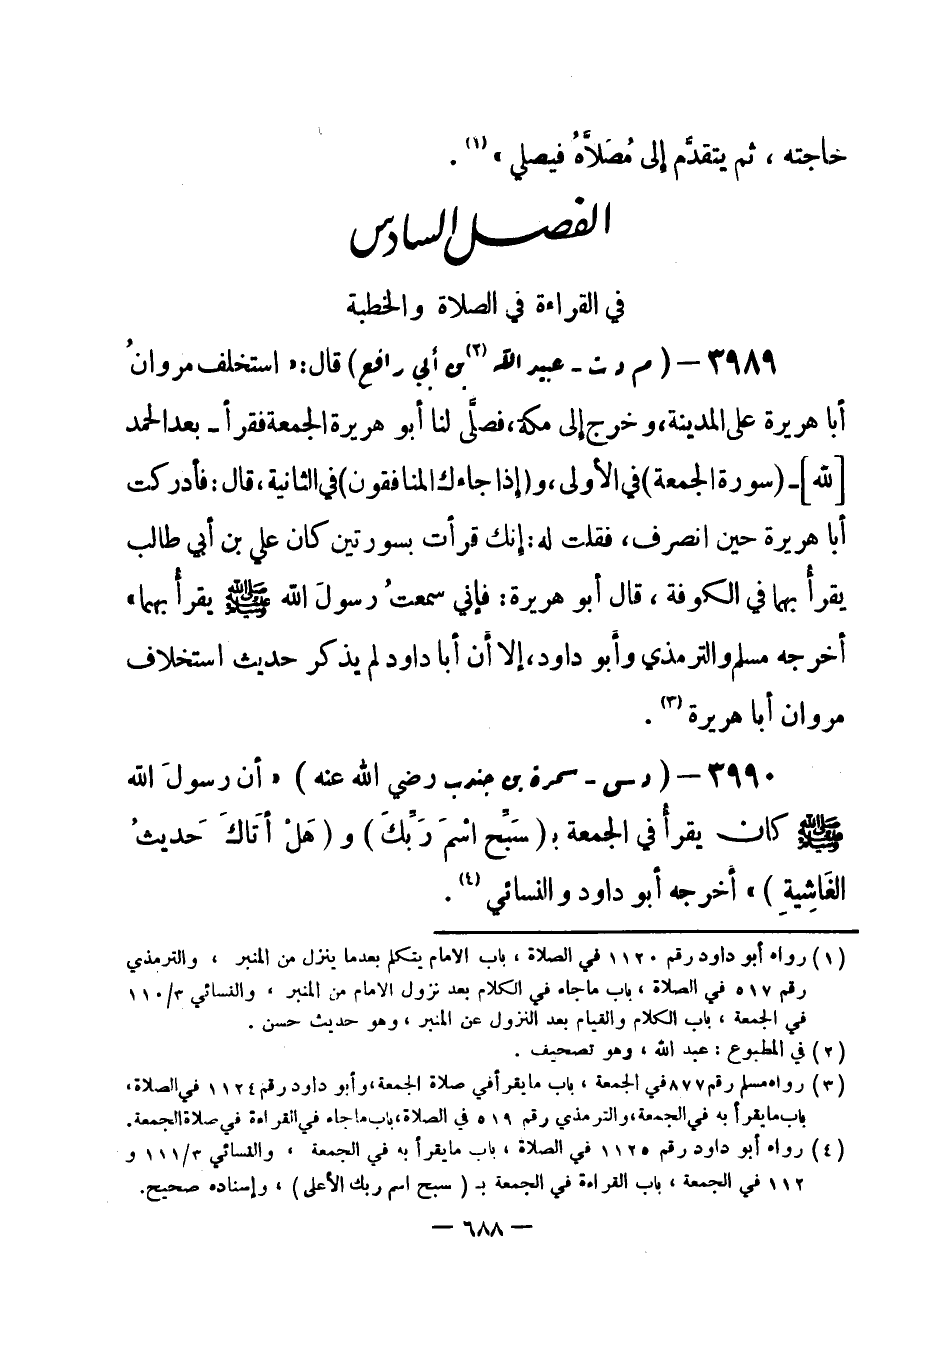 حاجته ، ثم يتقدَّم إلى مُصَلاَّهُ فيصلي » (١) .
الفصل السادس
في القراءة في الصلاة والخطبة
٣٩٨٩ – ( م د ت ـ عبيد الله (٢) بن أبي رافع ) قال : « استخلف مروانُ
أبا هريرة على المدينة ، وخرج إلى مكة ، فصلَّى لنا أبو هريرة الجمعة فقرأ ـ بعد الحمد
[لله] ـ ( سورة الجمعة ) في الأولى ، و ( إذا جاءك المنافقون ) في الثانية ، قال : فأدركت
أبا هريرة حين انصرف ، فقلت له : إنك قرأت بسورتين كان علي بن أبي طالب
يقرأُ بهما في الكوفة ، قال أبو هريرة : فإني سمعتُ رسولَ الله ﷺ يقرأُ بهما »
أخرجه مسلم والترمذي وأبو داود ، إلا أن أبا داود لم يذكر حديث استخلاف
مروان أبا هريرة (٣) .
٣٩٩٠ – ( د س ـ سمرة بن جندب رضي الله عنه ) « أن رسولَ الله
ﷺ كان يقرأُ في الجمعة بـ ( سَبِّح اسْمَ رَبِّكَ ) و ( هَلْ أتَاكَ حَديثُ
الغَاشِيةِ ) » أخرجه أبو داود والنسائي (٤) .
(١) رواه أبو داود رقم ١١٢٠ في الصلاة ، باب الامام يتكلم بعدما ينزل من المنبر ، والترمذي
رقم ٥١٧ في الصلاة ، باب ماجاء في الكلام بعد نزول الامام من المنبر ، والنسائي ١١٠/٣
في الجمعة ، باب الكلام والقيام بعد النزول عن المنبر ، وهو حديث حسن .
(٢) في المطبوع : عبد الله ، وهو تصحيف .
(٣) رواه مسلم رقم ٨٧٧ في الجمعة ، باب مايقرأ في صلاة الجمعة ، وأبو داود رقم ١١٢٤ في الصلاة ،
باب مايقرأ به في الجمعة ، والترمذي رقم ٥١٩ في الصلاة ، باب ماجاء في القراءة في صلاة الجمعة .
(٤) رواه أبو داود رقم ١١٢٥ في الصلاة ، باب مايقرأ به في الجمعة ، والنسائي ١١١/٣ و
١١٢ في الجمعة ، باب القراءة في الجمعة بـ ( سبح اسم ربك الأعلى ) ، وإسناده صحيح .
— ٦٨٨ —